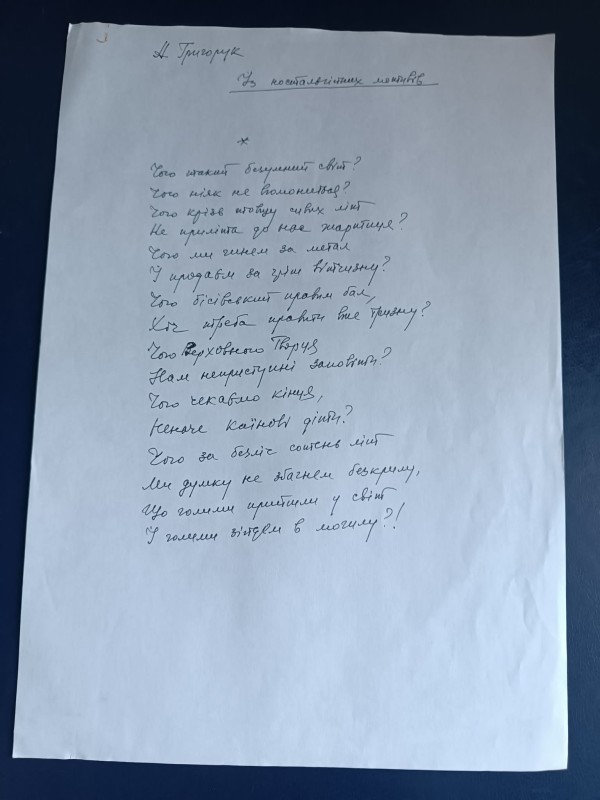 А Григорук
Із ностальгійних мотивів
*
Чого такий безумний світ?
Чого ніяк не вгомониться?
Чого крізь товщу сивих літ
Не приліта до нас жар-птиця?
Чого ми гинем за метал
І продаєм за гріш вітчизну?
Чого бісівський правим бал,
Хоч треба правити вже тризну?
Чого Верховного Творця
Нам неприступні заповіти?
Чого чекаємо кінця,
Неначе Каїнові діти?
Чого за безліч сотень літ
Ми думку не збагнем безкрилу,
Що голими прийшли у світ
І голими зійдем в могилу?!